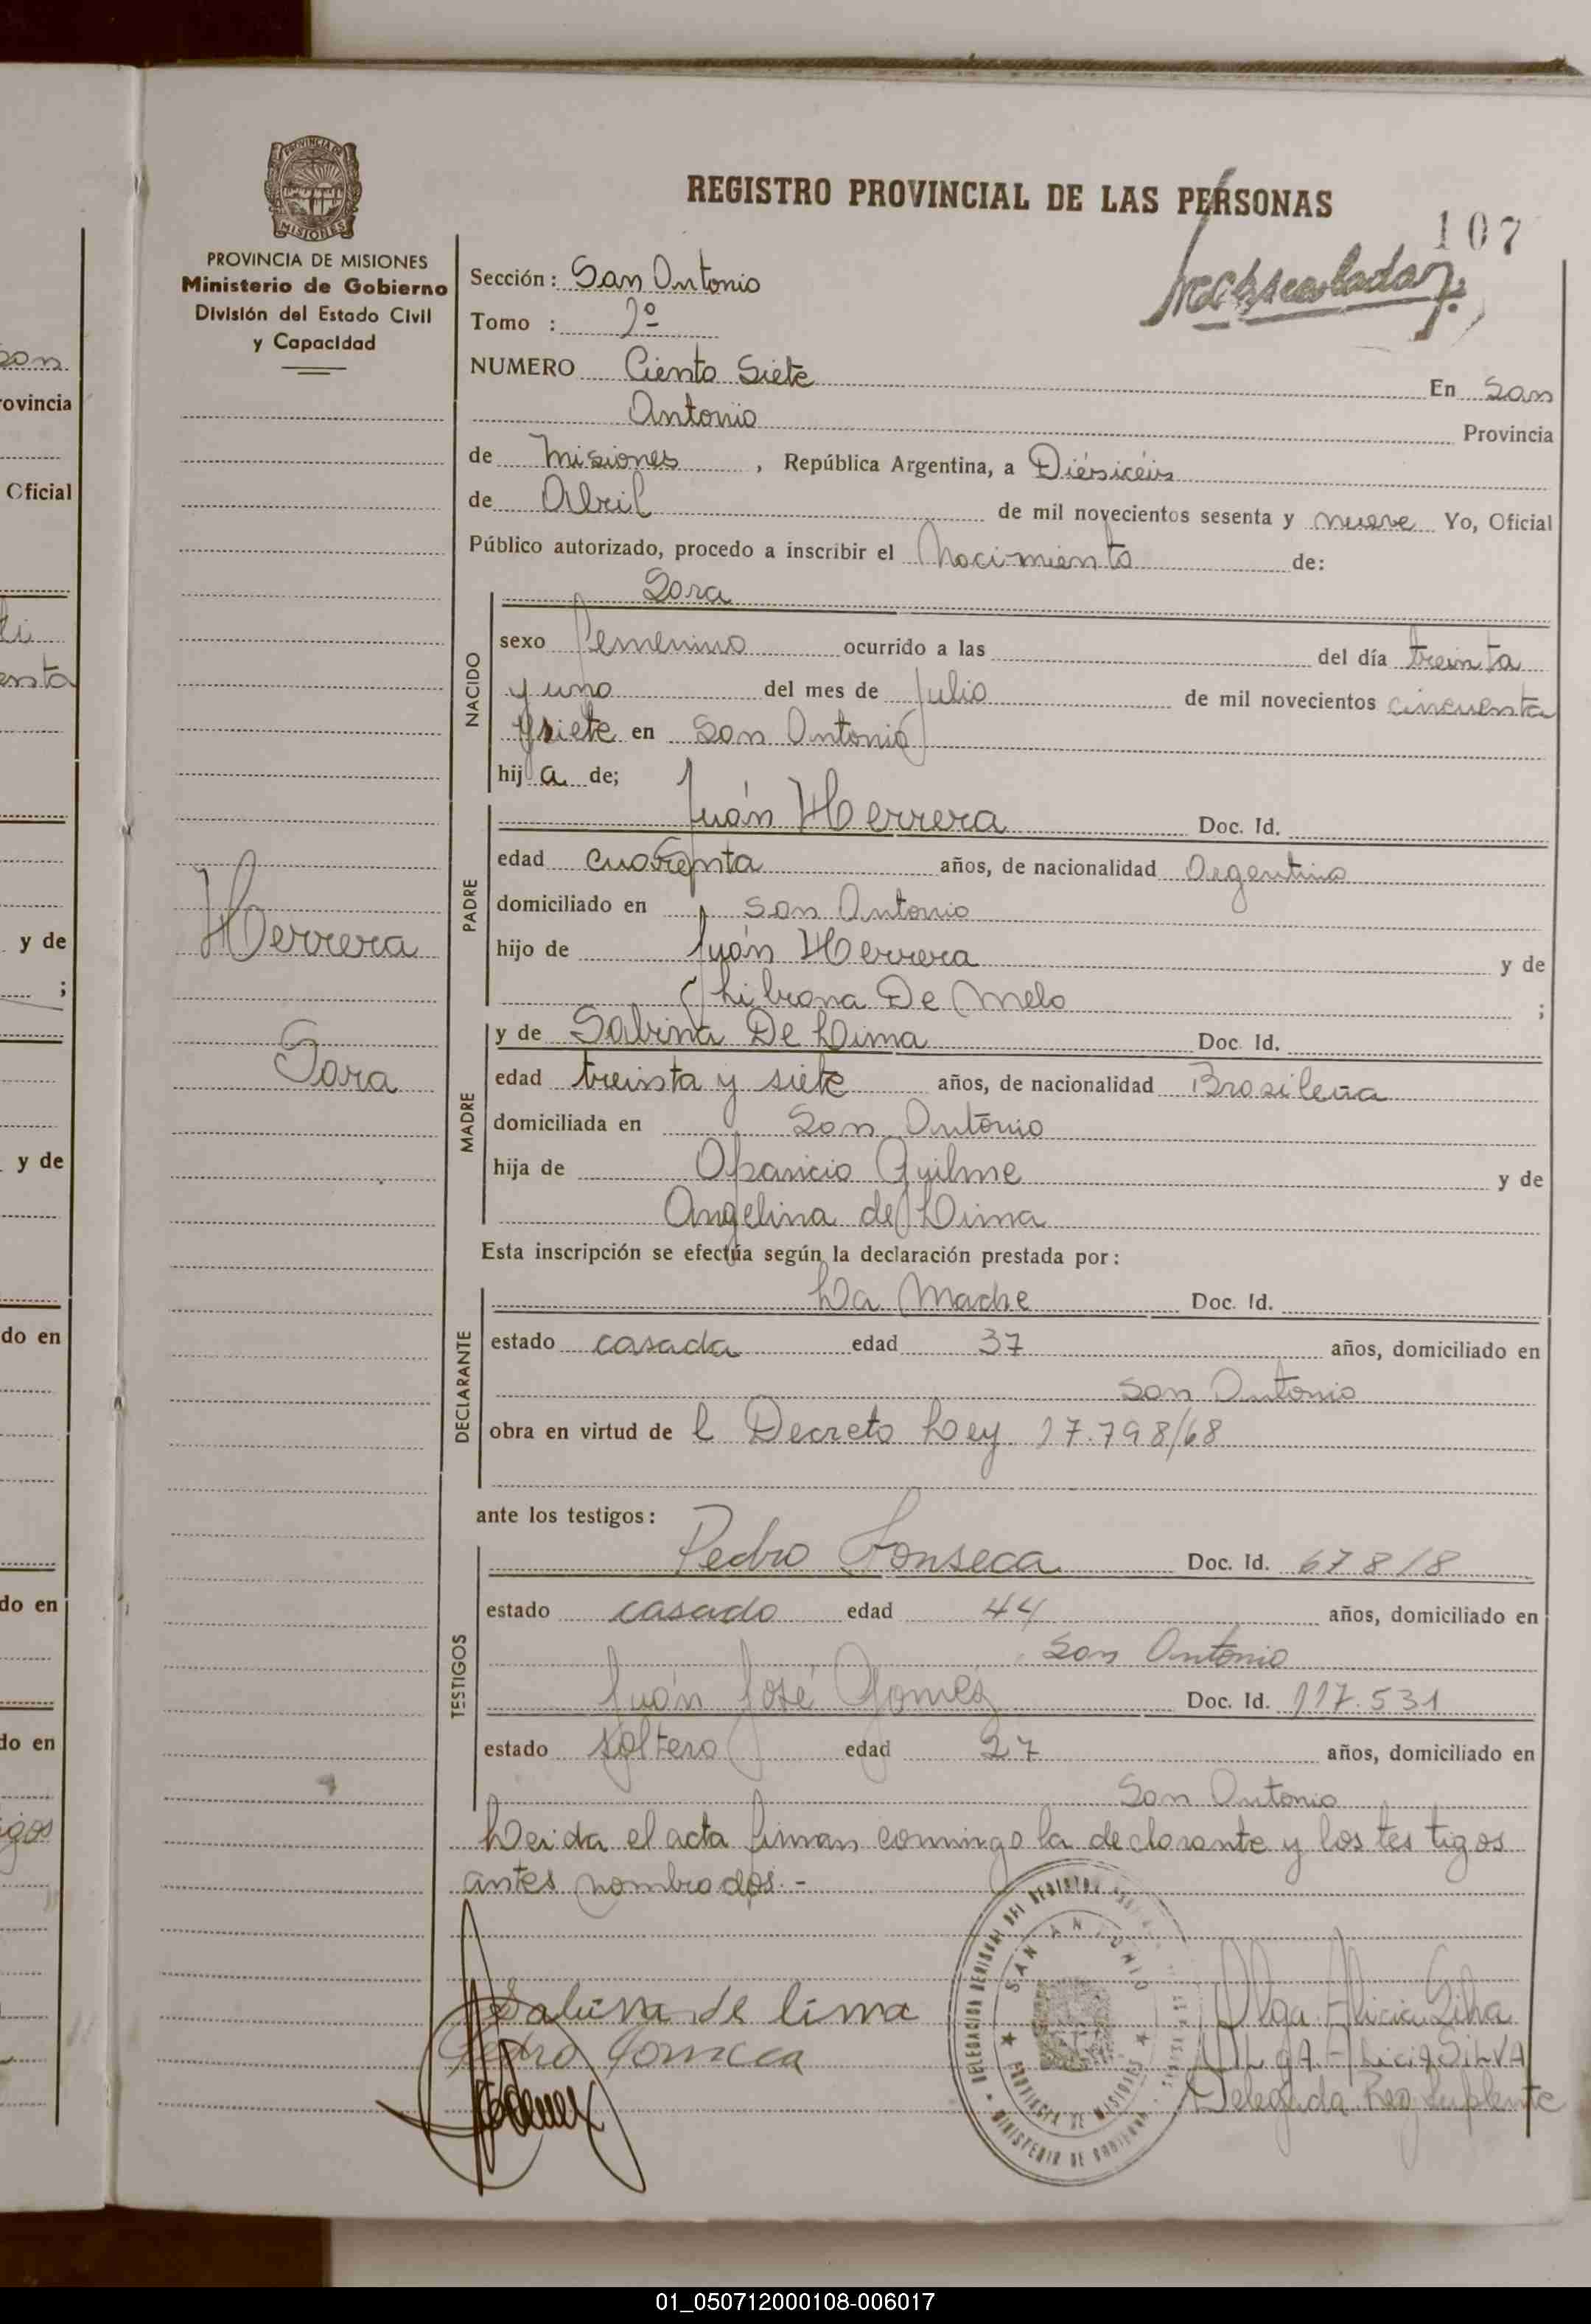 REGISTRO PROVINCIAL DE LAS PERSONAS
107
PROVINCIA DE MISIONES
Ministerio de Gobierno
División del Estado Civil
y Capacidad
Sección: San Antonio
Tomo :
NUMERO Ciento Siete En San
Antonio Provincia
de Misiones, República Argentina, a Diésicéis
de Abril de mil novecientos sesenta y nueve Yo, Oficial
Público autorizado, procedo a inscribir el Nacimiento de:
Sara
NACIDO
sexo Femenino ocurrido a las del día treinta
y uno del mes de Julio de mil novecientos cincuenta
y siete en San Antonio
hija de;
PADRE
Juán Herrera Doc. Id.
edad cuarenta años, de nacionalidad Argentino
domiciliado en San Antonio
hijo de Juán Herrera y de
De Melo ;
MADRE
y de Sabina De Lima Doc. Id.
edad treinta y siete años, de nacionalidad Brasileña
domiciliada en San Antonio
hija de Aparicio Guilme y de
Angelina de Lima
Herrera
Sara
Esta inscripción se efectúa según la declaración prestada por:
DECLARANTE
La Madre Doc. Id.
estado casada edad 37 años, domiciliado en
San Antonio
obra en virtud de l Decreto Ley 17.798/68
ante los testigos:
TESTIGOS
Pedro Fonseca Doc. Id. 67818
estado casado edad 44 años, domiciliado en
San Antonio
Juán José Gomez Doc. Id. 117.531
estado soltero edad 27 años, domiciliado en
San Antonio
Leida el acta firman comingo la declarante y los testigos
antes nombrados.-
Sabina de lima
Pedro Fonseca
SAN ANTONIO
PROVINCIA DE MISIONES
MINISTERIO DE GOBIERNO
Olga Alicia Silva
OLGA ALICIA SILVA
Delegada Reg Suplente
son
ovincia
Oficial
y de
;
y de
do en
do en
do en
igos
01_050712000108-006017